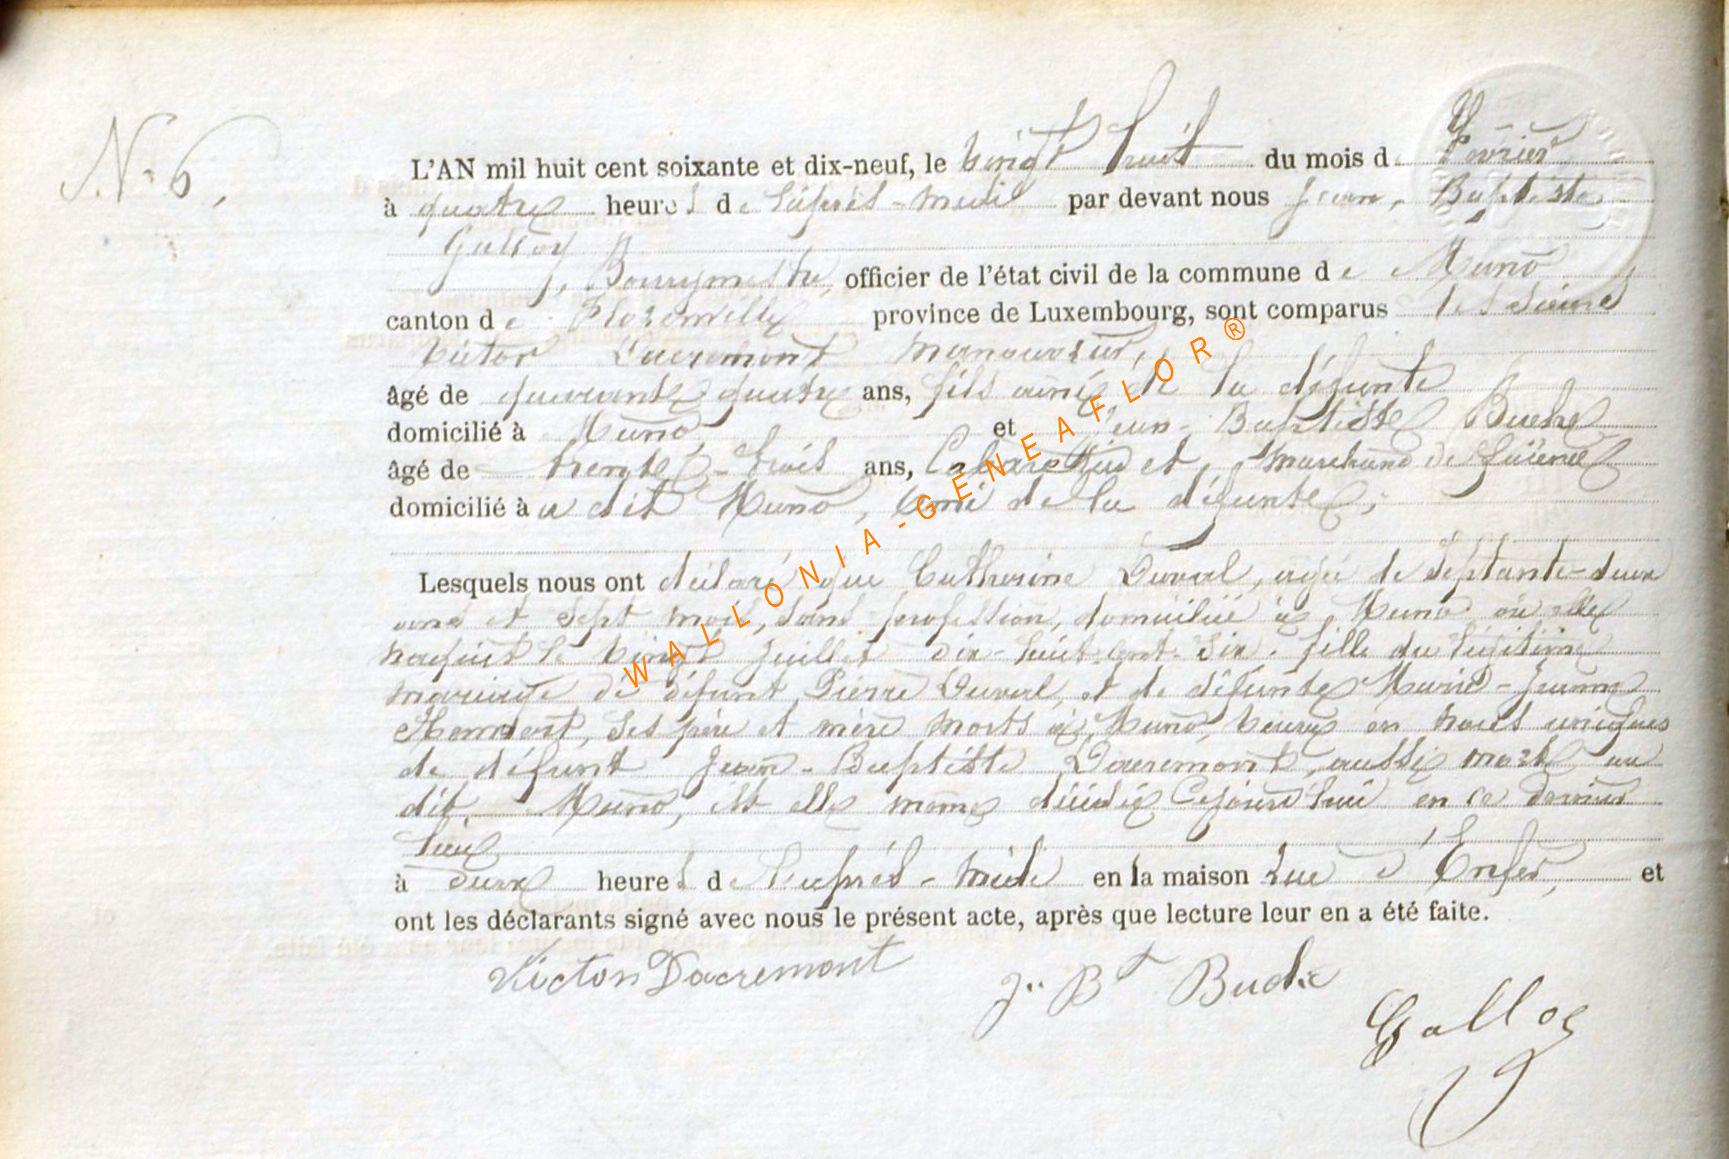 N° 6.
L'AN mil huit cent soixante et dix-neuf, le vingt huit du mois de Février
à quatre heures de l'après-midi par devant nous Jean-Baptiste
Galloy
, Bourgmestre, officier de l'état civil de la commune de Muno
canton de Florenville province de Luxembourg, sont comparus les sieurs
Victor Dacremont manouvrier,
âgé de quarante quatre ans, fils ainé de la défunte
domicilié à Muno, et Jean-Baptiste Buche
âgé de trente-trois ans, Cabaretier et marchand de
domicilié à u dit Muno, ami de la défunte,
Lesquels nous ont déclaré que Catherine Duval, agée de septante-deux
ans et sept mois, sans profession, domiciliée à Muno où elle
naquit le vingt juillet dix-huit-cent-six, fille du légitime
mariage de défunt Pierre Duval, et de défunte Marie-Jeanne
ses père et mère morts à Muno, veuve en noces uniques
de défunt Jean-Baptiste Dacremont, aussi mort au
dit Muno, est elle même décédée cejourd'hui en ce dernier
lieu
à deux heures de l'après-midi en la maison rue d'Enfer, et
ont les déclarants signé avec nous le présent acte, après que lecture leur en a été faite.
Victor Dacremont
J. Bte Buche
Galloy
WALLONIA-GENEAFLOR®